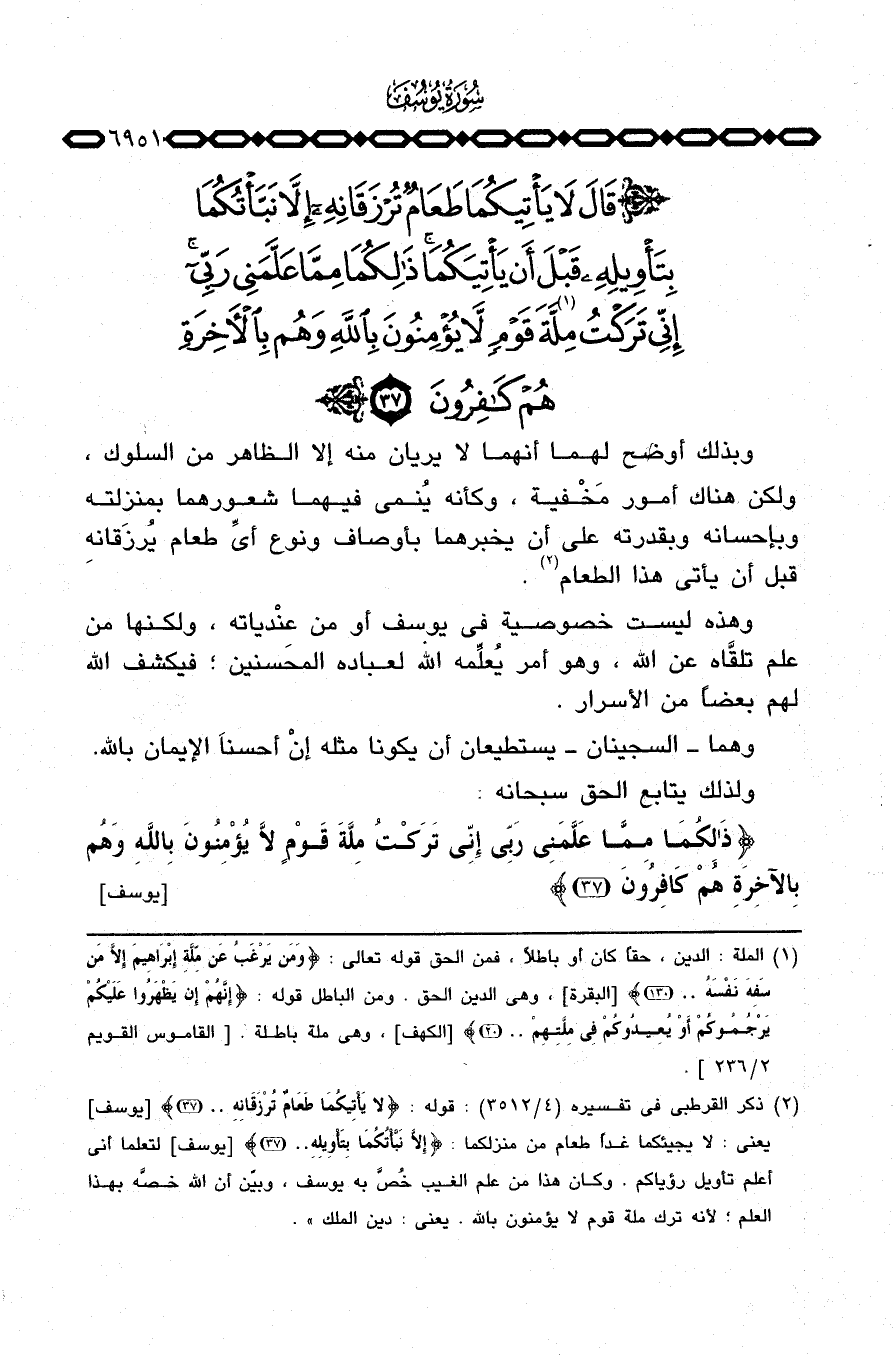 سُورَةُ يُوسُفَ
٦٩٥١
قَالَ لَا يَأْتِيكُمَا طَعَامٌ تُرْزَقَانِهِۦٓ إِلَّا نَبَّأْتُكُمَا
بِتَأْوِيلِهِۦ قَبْلَ أَن يَأْتِيَكُمَا ۚ ذَٰلِكُمَا مِمَّا عَلَّمَنِى رَبِّىٓ ۚ
إِنِّى تَرَكْتُ مِلَّةَ(١) قَوْمٍ لَّا يُؤْمِنُونَ بِٱللَّهِ وَهُم بِٱلْأَخِرَةِ
هُمْ كَـٰفِرُونَ ٣٧
وبذلك أوضح لهما أنهما لا يريان منه إلا الظاهر من السلوك ،
ولكن هناك أمور مَخْفية ، وكأنه يُنمى فيهما شعورهما بمنزلته
وبإحسانه وبقدرته على أن يخبرهما بأوصاف ونوع أىِّ طعام يُرزَقانه
قبل أن يأتى هذا الطعام(٢) .
وهذه ليست خصوصية فى يوسف أو من عنْدياته ، ولكنها من
علم تلقَّاه عن الله ، وهو أمر يُعلِّمه الله لعباده المحسنين ؛ فيكشف الله
لهم بعضاً من الأسرار .
وهما ــ السجينان ــ يستطيعان أن يكونا مثله إنْ أحسنا الإيمان بالله.
ولذلك يتابع الحق سبحانه :
﴿ ذَٰلِكُمَا مِمَّا عَلَّمَنِى رَبِّى إِنِّى تَرَكْتُ مِلَّةَ قَوْمٍ لاَّ يُؤْمِنُونَ بِاللَّهِ وَهُم
بِالآخِرَةِ هُمْ كَافِرُونَ (٣٧) ﴾ [يوسف]
(١) الملة : الدين ، حقاً كان أو باطلاً ، فمن الحق قوله تعالى : ﴿ وَمَن يَرْغَبُ عَن مِّلَّةِ إِبْرَاهِيمَ إِلاَّ مَن
سَفِهَ نَفْسَهُ .. (١٣٠) ﴾ [البقرة] ، وهى الدين الحق . ومن الباطل قوله : ﴿ إِنَّهُمْ إِن يَظْهَرُوا عَلَيْكُمْ
يَرْجُمُوكُمْ أَوْ يُعِيدُوكُمْ فِى مِلَّتِهِمْ .. (٢٠) ﴾ [الكهف] ، وهى ملة باطلة . [ القاموس القويم
٢٣٦/٢ ] .
(٢) ذكر القرطبى فى تفسيره (٣٥١٢/٤) : قوله : ﴿ لا يَأْتِيكُمَا طَعَامٌ تُرْزَقَانِهِ .. (٣٧) ﴾ [يوسف]
يعنى : لا يجيئكما غداً طعام من منزلكما : ﴿ إِلاَّ نَبَّأْتُكُمَا بِتَأْوِيلِهِ .. (٣٧) ﴾ [يوسف] لتعلما أنى
أعلم تأويل رؤياكم . وكان هذا من علم الغيب خُصَّ به يوسف ، وبيّن أن الله خصَّه بهذا
العلم ؛ لأنه ترك ملة قوم لا يؤمنون بالله . يعنى : دين الملك » .